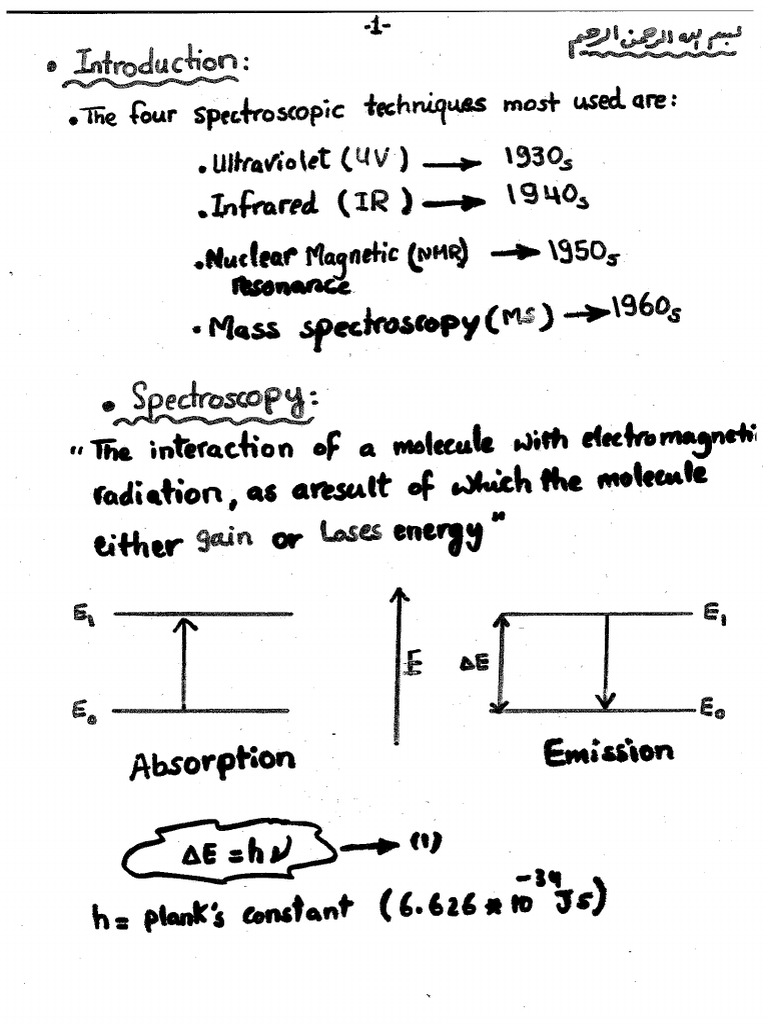 -1-
بسم الله الرحمن الرحيم
• Introduction:
• The four spectroscopic techniques most used are:
• Ultraviolet (UV) → 1930s
• Infrared (IR) → 1940s
• Nuclear Magnetic (NMR) → 1950s
resonance
• Mass spectroscopy (MS) → 1960s
• Spectroscopy:
"The interaction of a molecule with electromagneti
radiation, as aresult of which the molecule
either gain or Loses energy"
E₁ E₁
E ΔE
E₀ E₀
Absorption Emission
ΔE = hν → (1)
h = plank's constant (6.626 * 10⁻³⁴ Js)